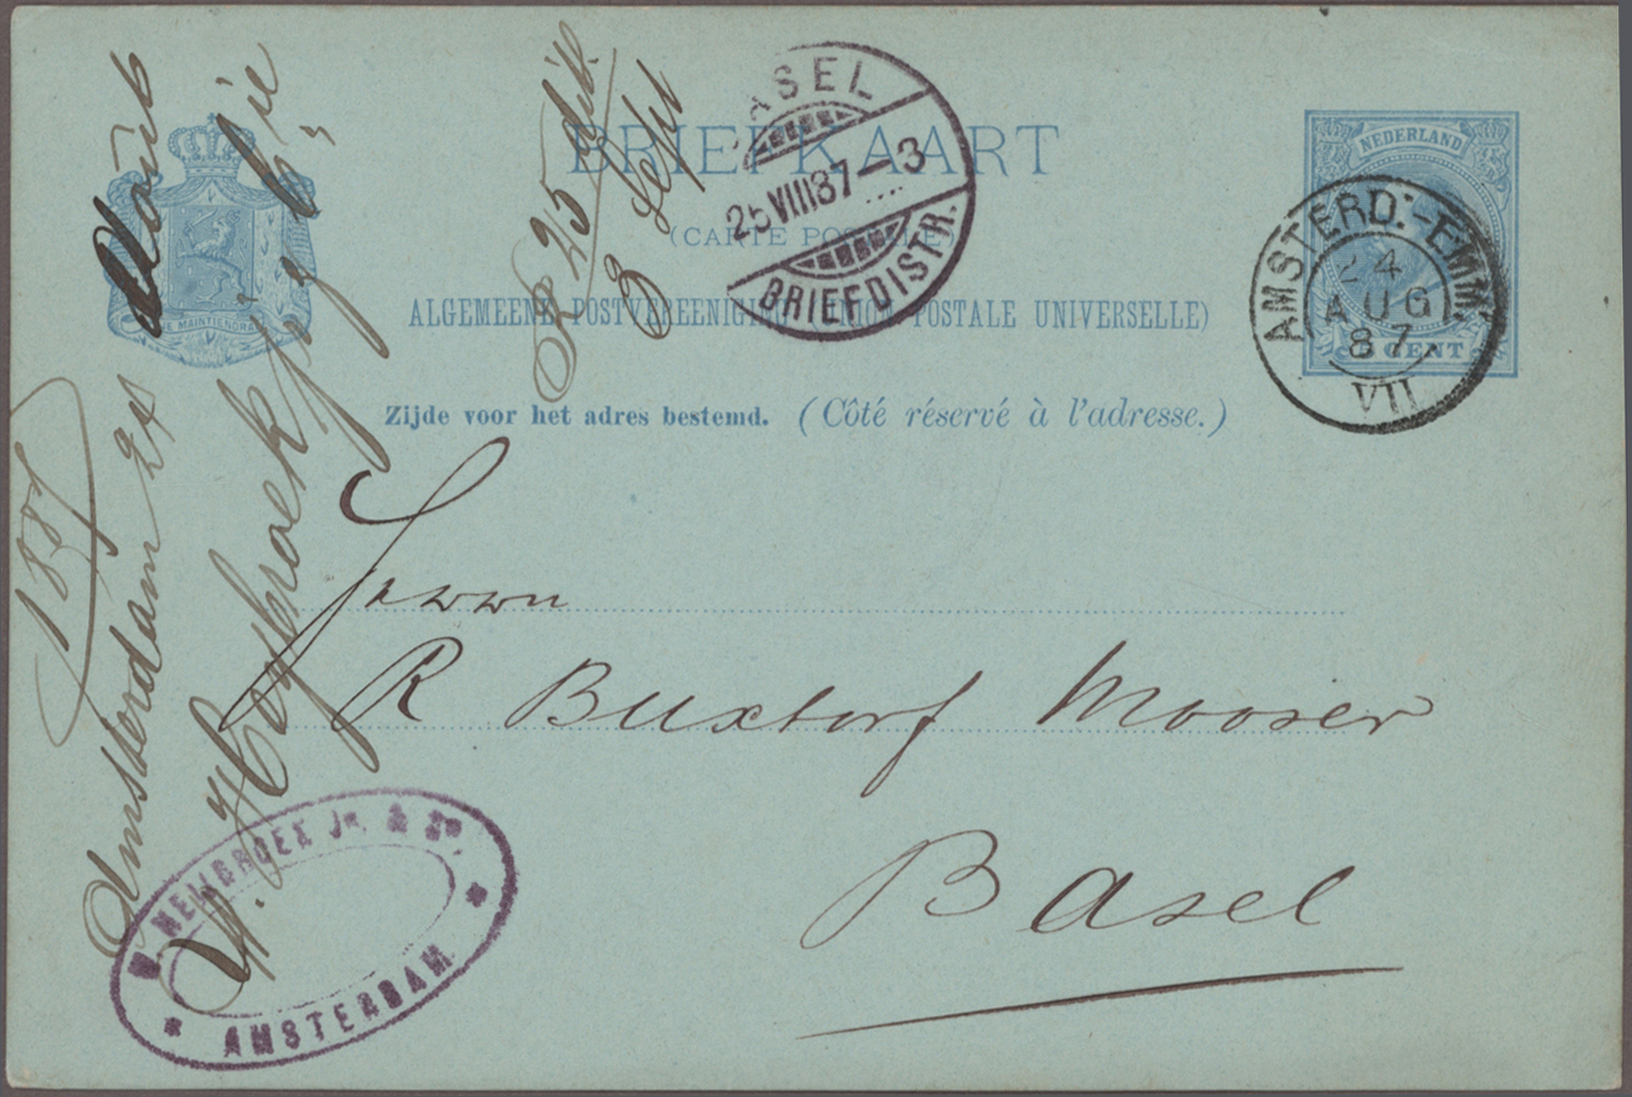 BRIEFKAART
(CARTE POSTALE)
ALGEMEENE POSTVEREENIGING (UNION POSTALE UNIVERSELLE)
Zijde voor het adres bestemd. (Côté réservé à l'adresse.)
JE MAINTIENDRAI
NEDERLAND
5 CENT
AMSTERD.-EMM.
24
AUG
87
VII
BASEL
25 VIII 87 - 3
BRIEFDISTR.
Herrn
R Buxtorf Mooser
Basel
1887
Amsterdam 24
25
3 Sept
JR. & ZN.
AMSTERDAM